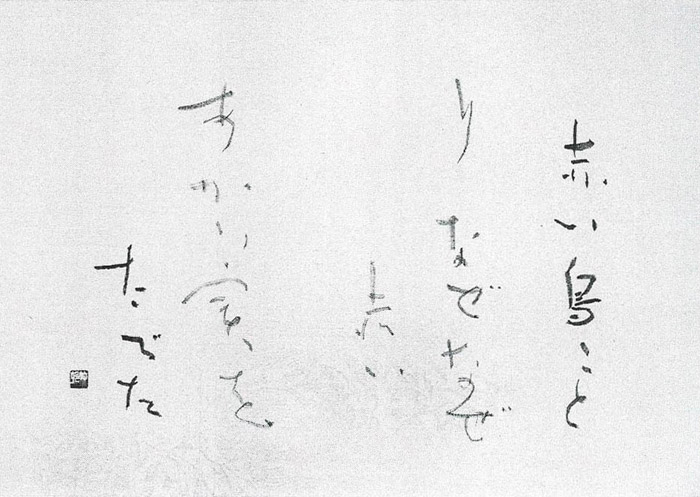 赤い鳥こと
りなぜなぜ
赤い
あかい実を
たべた